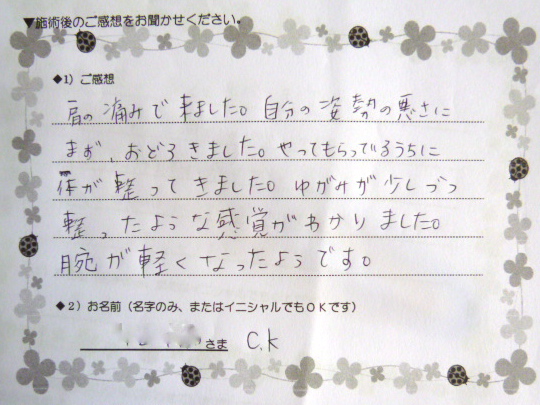 ▼施術後のご感想をお聞かせください。
◆1）ご感想
肩の痛みで来ました。自分の姿勢の悪さに
まず、おどろきました。やってもらってるうちに
体が整ってきました。ゆがみが少しづつ
整ったような感覚がわかりました。
腕が軽くなったようです。
◆2）お名前（名字のみ、またはイニシャルでもOKです）
さま C.K